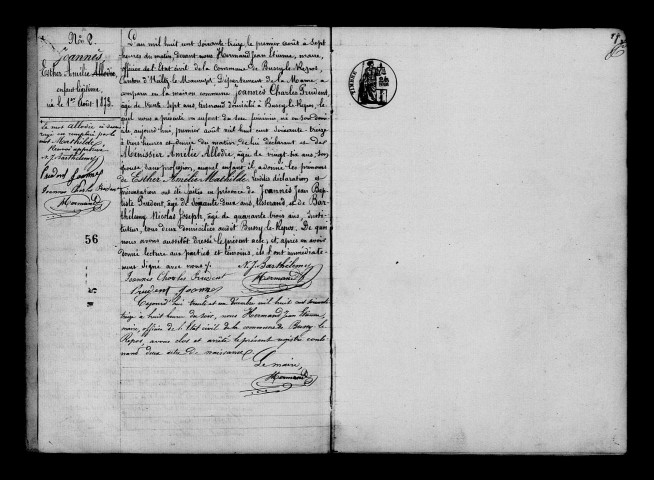 No 2.
Joannès
Esther Amélie Allodie
enfant légitime,
né le 1er Août 1873.
Le mot Allodie ci dessus
rayé est remplacé par le
mot Mathilde
N. J. Barthélemy
Prudent Joannes
Joannès Charles Prudent
Hermand
56
L'an mil huit cent soixante treize, le premier août à sept
heures du matin, devant nous Hermand Jean Etienne, maire,
officier de l'Etat civil de la commune de Bussy-le-Repos,
Canton d'Heiltz-le-Maurupt, Département de la Marne, a
comparu en la maison commune Joannès Charles Prudent,
âgé de trente sept ans, tisserand domicilié à Bussy-le-Repos, le
quel nous a présenté un enfant du sexe féminin, né en son domi-
cile, aujourd'hui premier août mil huit cent soixante-treize
à trois heures et demie du matin, de lui déclarant et de
Menissier Amélie Allodie, âgée de vingt six ans, son
épouse, sans profession, auquel enfant il a donné les prénoms
de Esther Amélie Mathilde. Lesdites déclaration et
présentation ont été faites en présence de Joannès Jean Bap-
tiste Prudent, âgé de soixante-deux ans, tisserand, et de Bar-
thélemy Nicolas Joseph, âgé de quarante trois ans, Insti-
tuteur, tous deux domiciliés audit Bussy-le-Repos. De quoi
nous avons aussitôt dressé le présent acte; et, après en avoir
donné lecture aux parties et témoins, ils l'ont immédiate-
ment signé avec nous.
N. J. Barthélemy
Joannès Charles Prudent
Hermand
Prudent Joannes
Cejourd'hui trente et un décembre mil huit cent soixante
treize à huit heures du soir, nous Hermand Jean Etienne
maire, officier de l'Etat civil de la commune de Bussy-le-
Repos, avons clos et arrêté le présent registre conte-
nant deux actes de naissance.
Le maire,
Hermand
TIMBRE